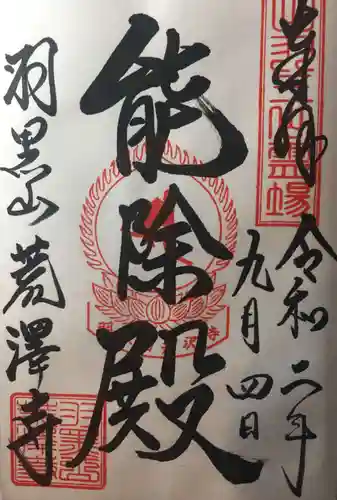 奉拝
令和二年
九月四日
能除殿
羽黒山荒澤寺